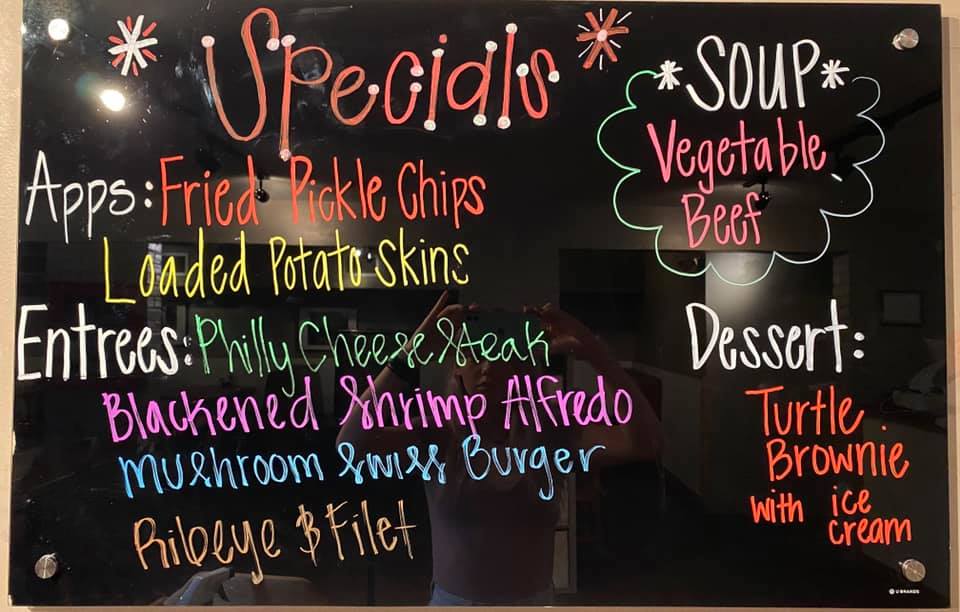 * Specials *
Apps: Fried Pickle Chips
Loaded Potato Skins
Entrees: Philly Cheese Steak
Blackened Shrimp Alfredo
Mushroom Swiss Burger
Ribeye & Filet
*SOUP*
Vegetable
Beef
Dessert:
Turtle
Brownie
with ice
cream
U BRANDS